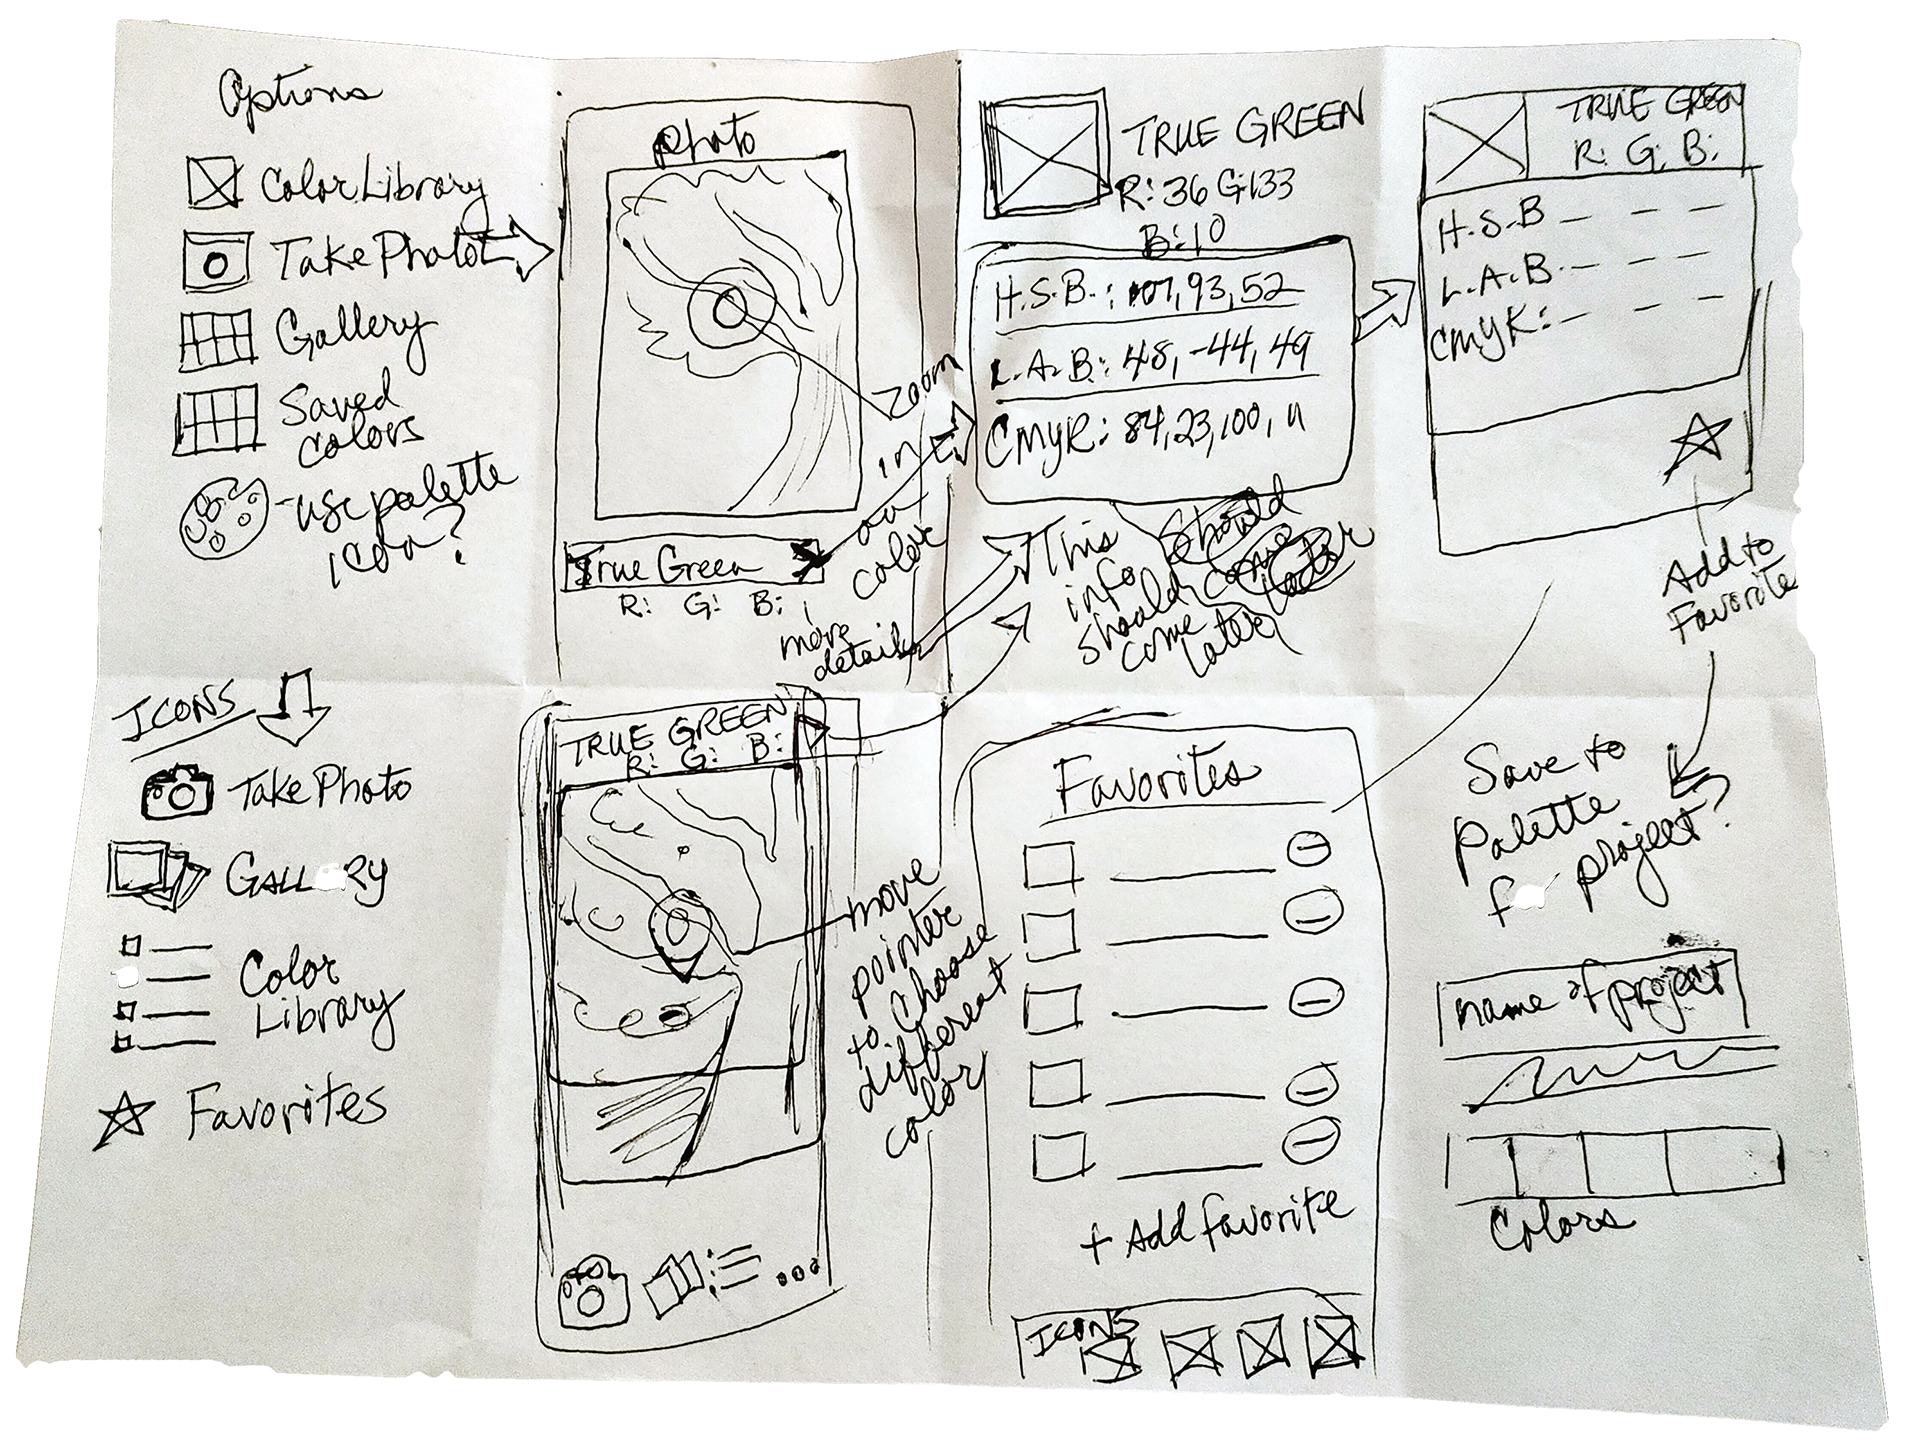 Options
Color Library
Take Photo
Gallery
Saved
Colors
- use palette
icon?
Photo
True Green
R: G: B:
Zoom
in
on
color
more
details
TRUE GREEN
R: 36 G: 133
B: 10
H.S.B.: 107, 93, 52
L.A.B: 48, -44, 49
CMYK: 84, 23, 100, 11
This
info
should
come
later
TRUE GREEN
R: G: B:
H.S.B
L.A.B.
CMYK:
Add to
Favorite
ICONS
Take Photo
GALL RY
Color
Library
Favorites
TRUE GREEN
R: G: B:
move
pointer
to choose
different
color
Favorites
+ Add favorite
ICONS
Save to
Palette
f project?
name of project
Colors